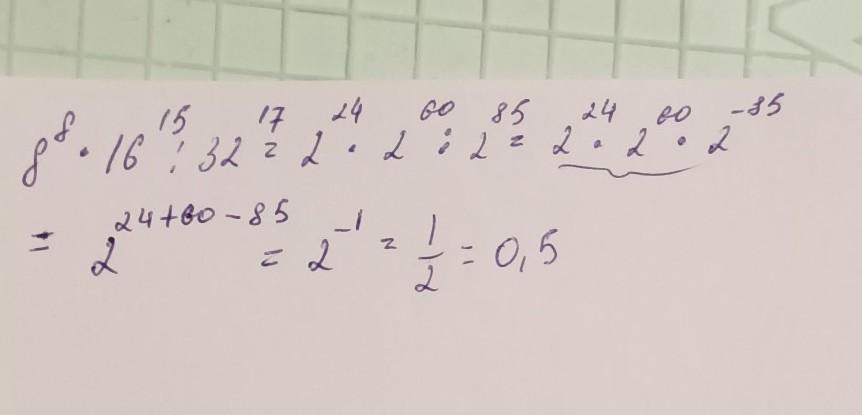 8⁸ · 16¹⁵ : 32¹⁷ = 2²⁴ · 2⁶⁰ : 2⁸⁵ = 2²⁴ · 2⁶⁰ · 2⁻⁸⁵
= 2²⁴⁺⁶⁰⁻⁸⁵ = 2⁻¹ = 1/2 = 0,5